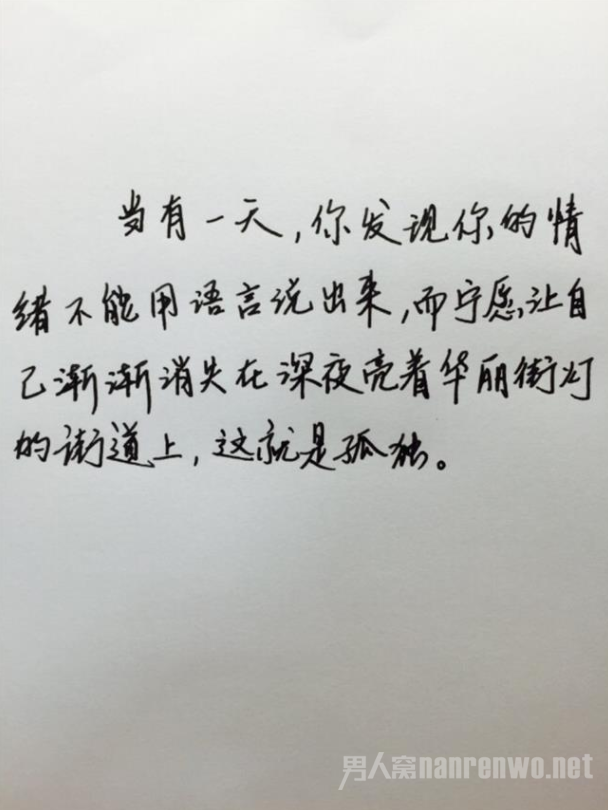 当有一天,你发现你的情
绪不能用语言说出来,而宁愿让自
己渐渐消失在深夜亮着华丽街灯
的街道上,这就是孤独。
男人窝nanrenwo.net